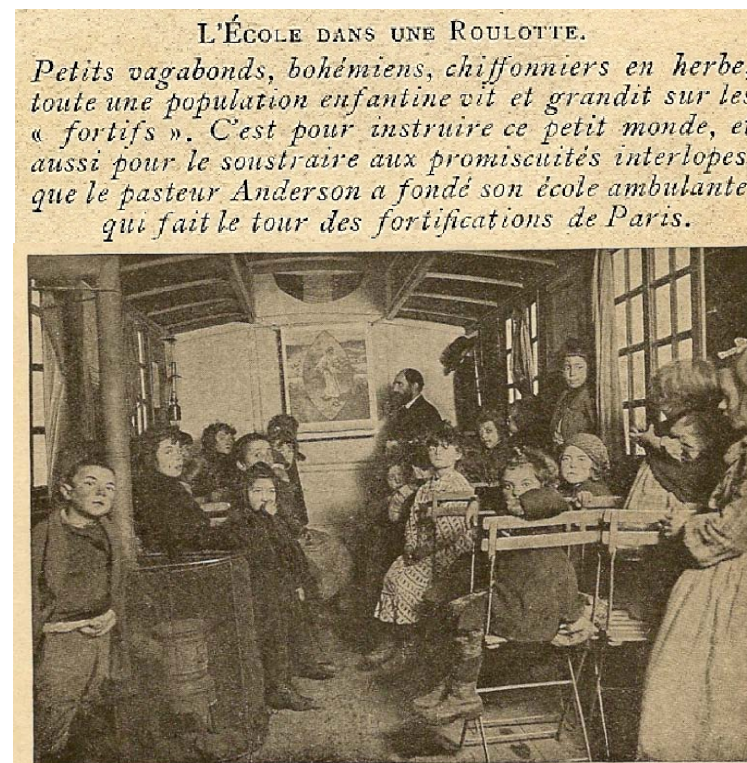 L'ÉCOLE DANS UNE ROULOTTE.
Petits vagabonds, bohémiens, chiffonniers en herbe,
toute une population enfantine vit et grandit sur les
« fortifs ». C'est pour instruire ce petit monde, et
aussi pour le soustraire aux promiscuités interlopes,
que le pasteur Anderson a fondé son école ambulante
qui fait le tour des fortifications de Paris.